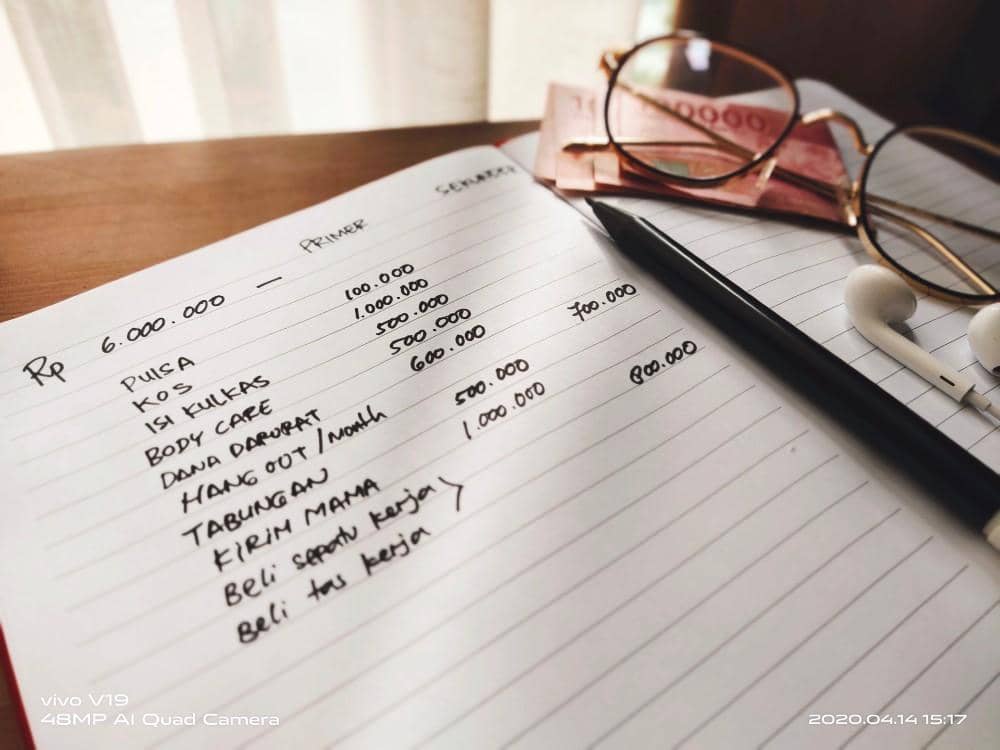 PRIMER SEKUNDER
Rp 6.000.000 —
PULSA 100.000
KOS 1.000.000
ISI KULKAS 500.000
BODY CARE 500.000
DANA DARURAT 600.000
HANG OUT / Month 700.000
TABUNGAN 500.000
KIRIM MAMA 1.000.000
Beli sepatu kerja > 800.000
Beli tas kerja
vivo V19
48MP AI Quad Camera
2020.04.14 15:17